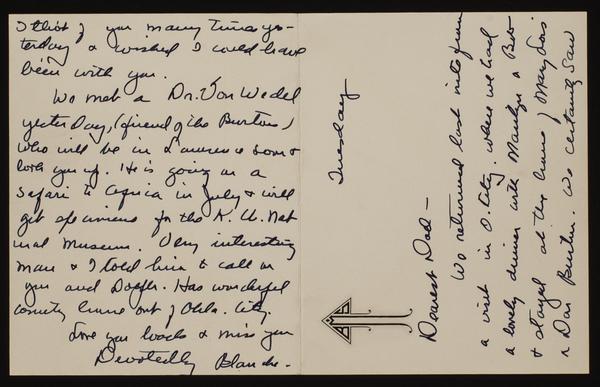 Tuesday
Dearest Dad -
We returned last nite from
a visit in O. City. where we had
a lovely dinner with Marilyn & Bob
& stayed at the home of Mary Lois
& Dan Burton. We certainly saw
I thot of you many times yes-
terday & wished I could have
been with you.
We met a Dr. Von Wedel
yesterday, (friend of the Burtons)
who will be in Lawrence soon &
look you up. He is going on a
safari to Africa in July & will
get specimens for the K. U. Nat
ural Museum. Very interesting
man & I told him to call on
you and  Has wonderful
country home out of Okla. City.
Love you loads & miss you
Devotedly Blanche -